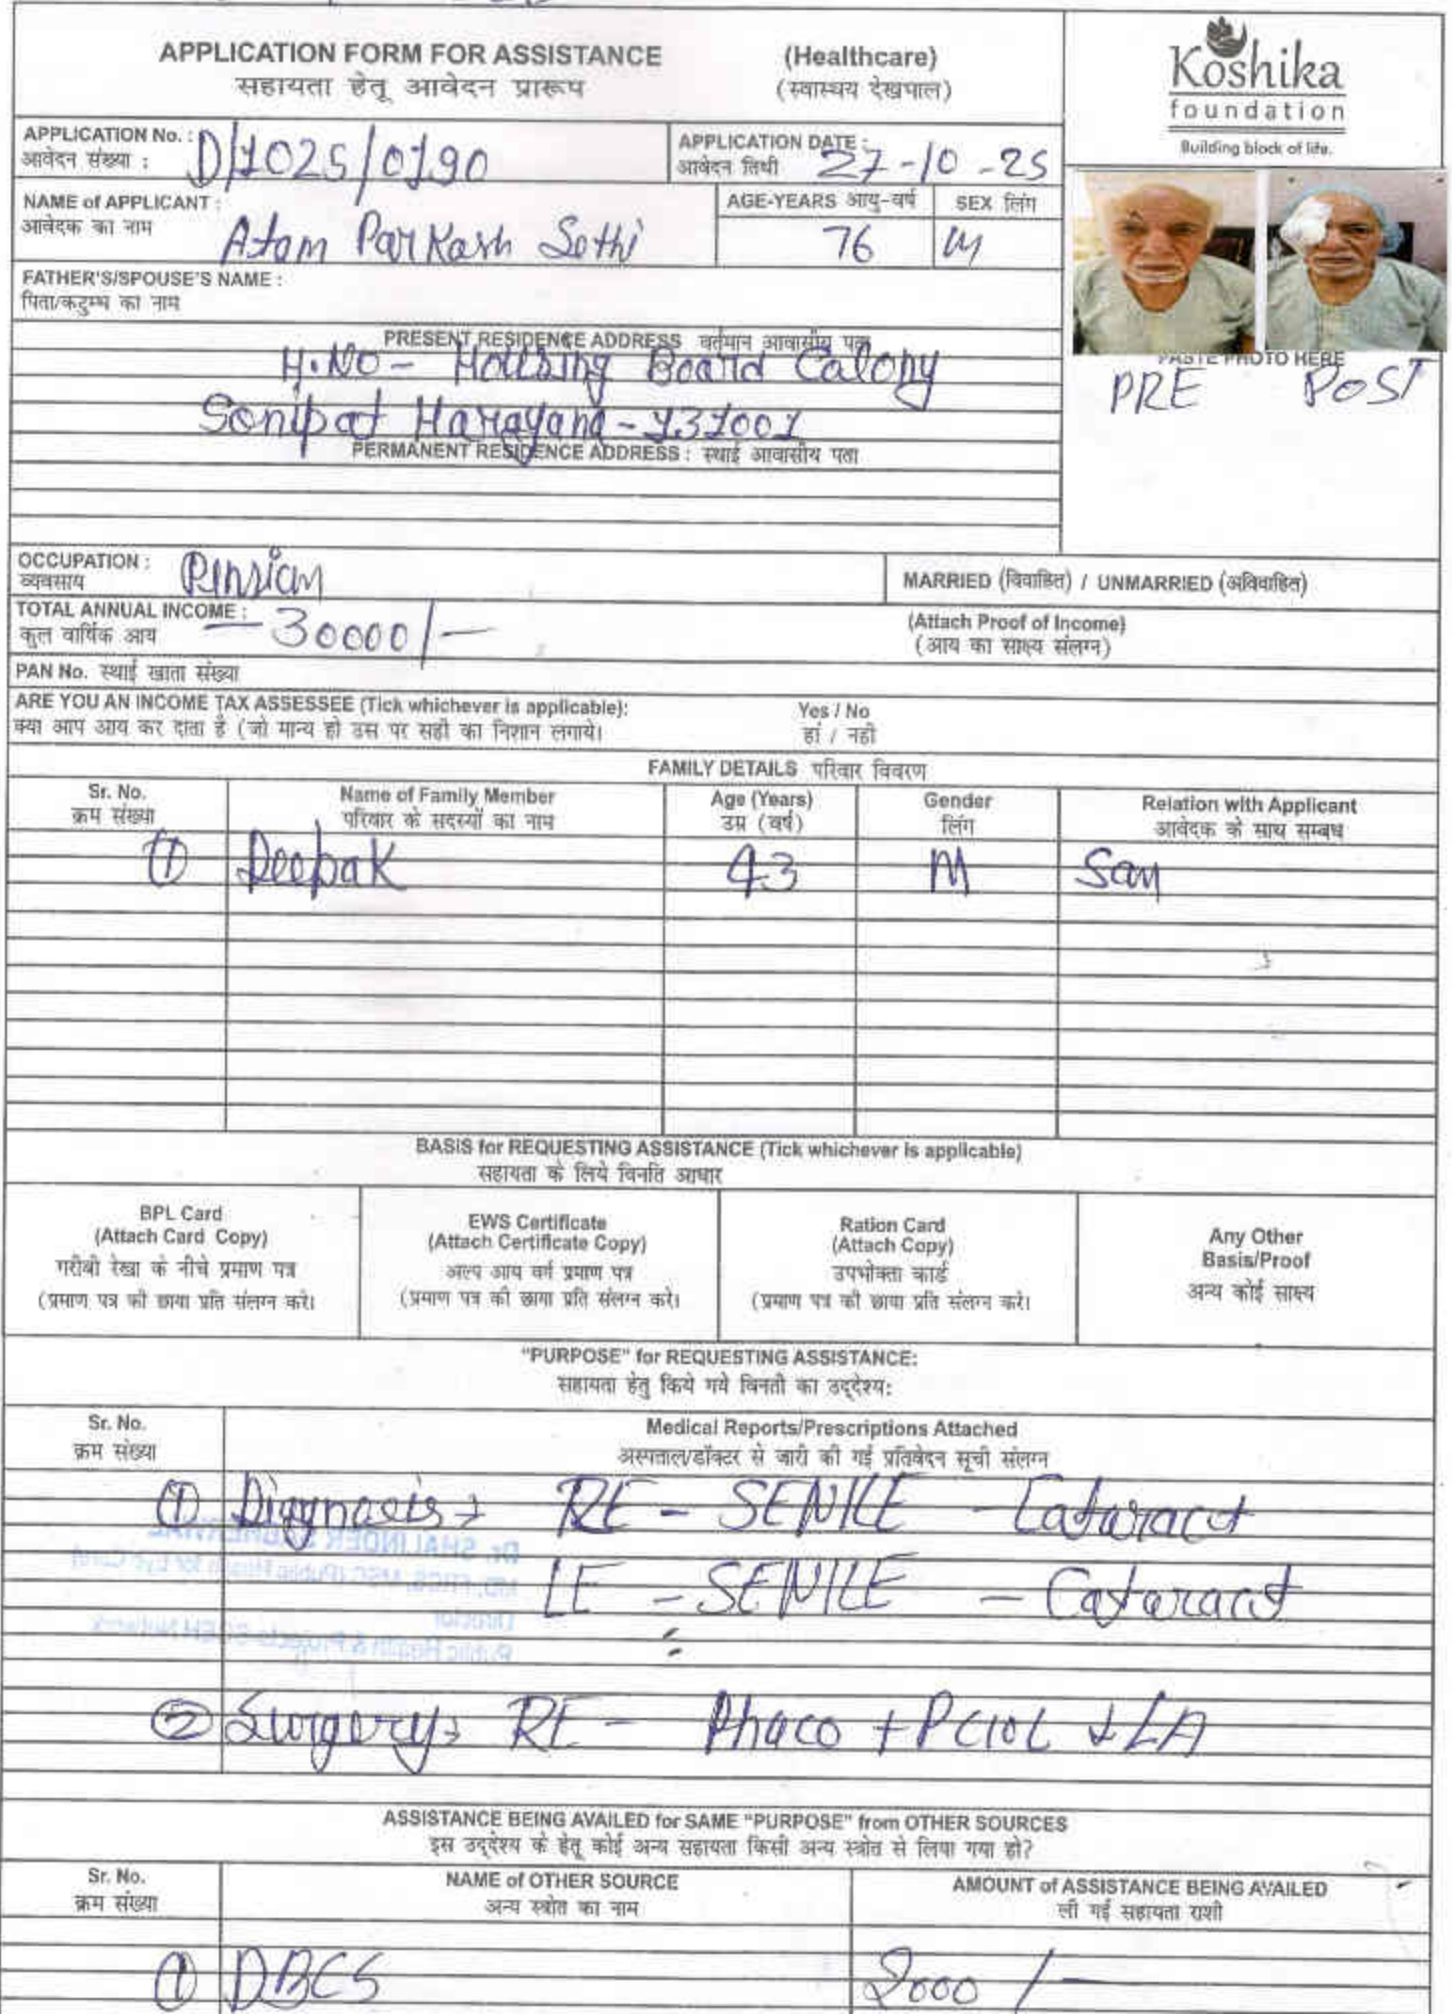 APPLICATION FORM FOR ASSISTANCE (Healthcare)
सहायता हेतू आवेदन प्रारूप (स्वास्थय देखपाल)
Koshika
foundation
Building block of life.
APPLICATION No. : D/1025/0190
आवेदन संख्या :
APPLICATION DATE : 27-10-25
आवेदन तिथी
NAME of APPLICANT : Atam Parkash Sethi
आवेदक का नाम
AGE-YEARS आयु-वर्ष 76
SEX लिंग M
FATHER'S/SPOUSE'S NAME :
पिता/कटुम्ब का नाम
PRESENT RESIDENCE ADDRESS वर्तमान आवासीय पता
H.NO- Housing Board Calony
Sonipat Harayana-131001
PASTE PHOTO HERE
PRE POST
PERMANENT RESIDENCE ADDRESS : स्थाई आवासीय पता
OCCUPATION : Pensian
व्यवसाय
MARRIED (विवाहित) / UNMARRIED (अविवाहित)
TOTAL ANNUAL INCOME : 30000/-
कुल वार्षिक आय
(Attach Proof of Income)
(आय का साक्ष्य संलग्न)
PAN No. स्थाई खाता संख्या
ARE YOU AN INCOME TAX ASSESSEE (Tick whichever is applicable): Yes / No
क्या आप आय कर दाता है (जो मान्य हो उस पर सही का निशान लगाये। हां / नही
FAMILY DETAILS परिवार विवरण
Sr. No. Name of Family Member Age (Years) Gender Relation with Applicant
क्रम संख्या परिवार के सदस्यों का नाम उम्र (वर्ष) लिंग आवेदक के साथ सम्बध
(1) Deepak 43 M Son
BASIS for REQUESTING ASSISTANCE (Tick whichever is applicable)
सहायता के लिये विनति आधार
BPL Card
(Attach Card Copy)
गरीबी रेखा के नीचे प्रमाण पत्र
(प्रमाण पत्र की छाया प्रति संलग्न करे।
EWS Certificate
(Attach Certificate Copy)
अल्प आय वर्ग प्रमाण पत्र
(प्रमाण पत्र की छाया प्रति संलग्न करे।
Ration Card
(Attach Copy)
उपभोक्ता कार्ड
(प्रमाण पत्र की छाया प्रति संलग्न करे।
Any Other
Basis/Proof
अन्य कोई साक्ष्य
"PURPOSE" for REQUESTING ASSISTANCE:
सहायता हेतु किये गये विनती का उद्देश्य:
Sr. No. Medical Reports/Prescriptions Attached
क्रम संख्या अस्पताल/डॉक्टर से जारी की गई प्रतिवेदन सूची संलग्न
(1) Diagnosis → RE - SENILE - Cataract
LE - SENILE - Cataract
(2) Surgery → RE - Phaco + PCIOL + LA
ASSISTANCE BEING AVAILED for SAME "PURPOSE" from OTHER SOURCES
इस उद्देश्य के हेतू कोई अन्य सहायता किसी अन्य स्त्रोत से लिया गया हो?
Sr. No. NAME of OTHER SOURCE AMOUNT of ASSISTANCE BEING AVAILED
क्रम संख्या अन्य स्त्रोत का नाम ली गई सहायता राशी
(1) DBCS 2000/-